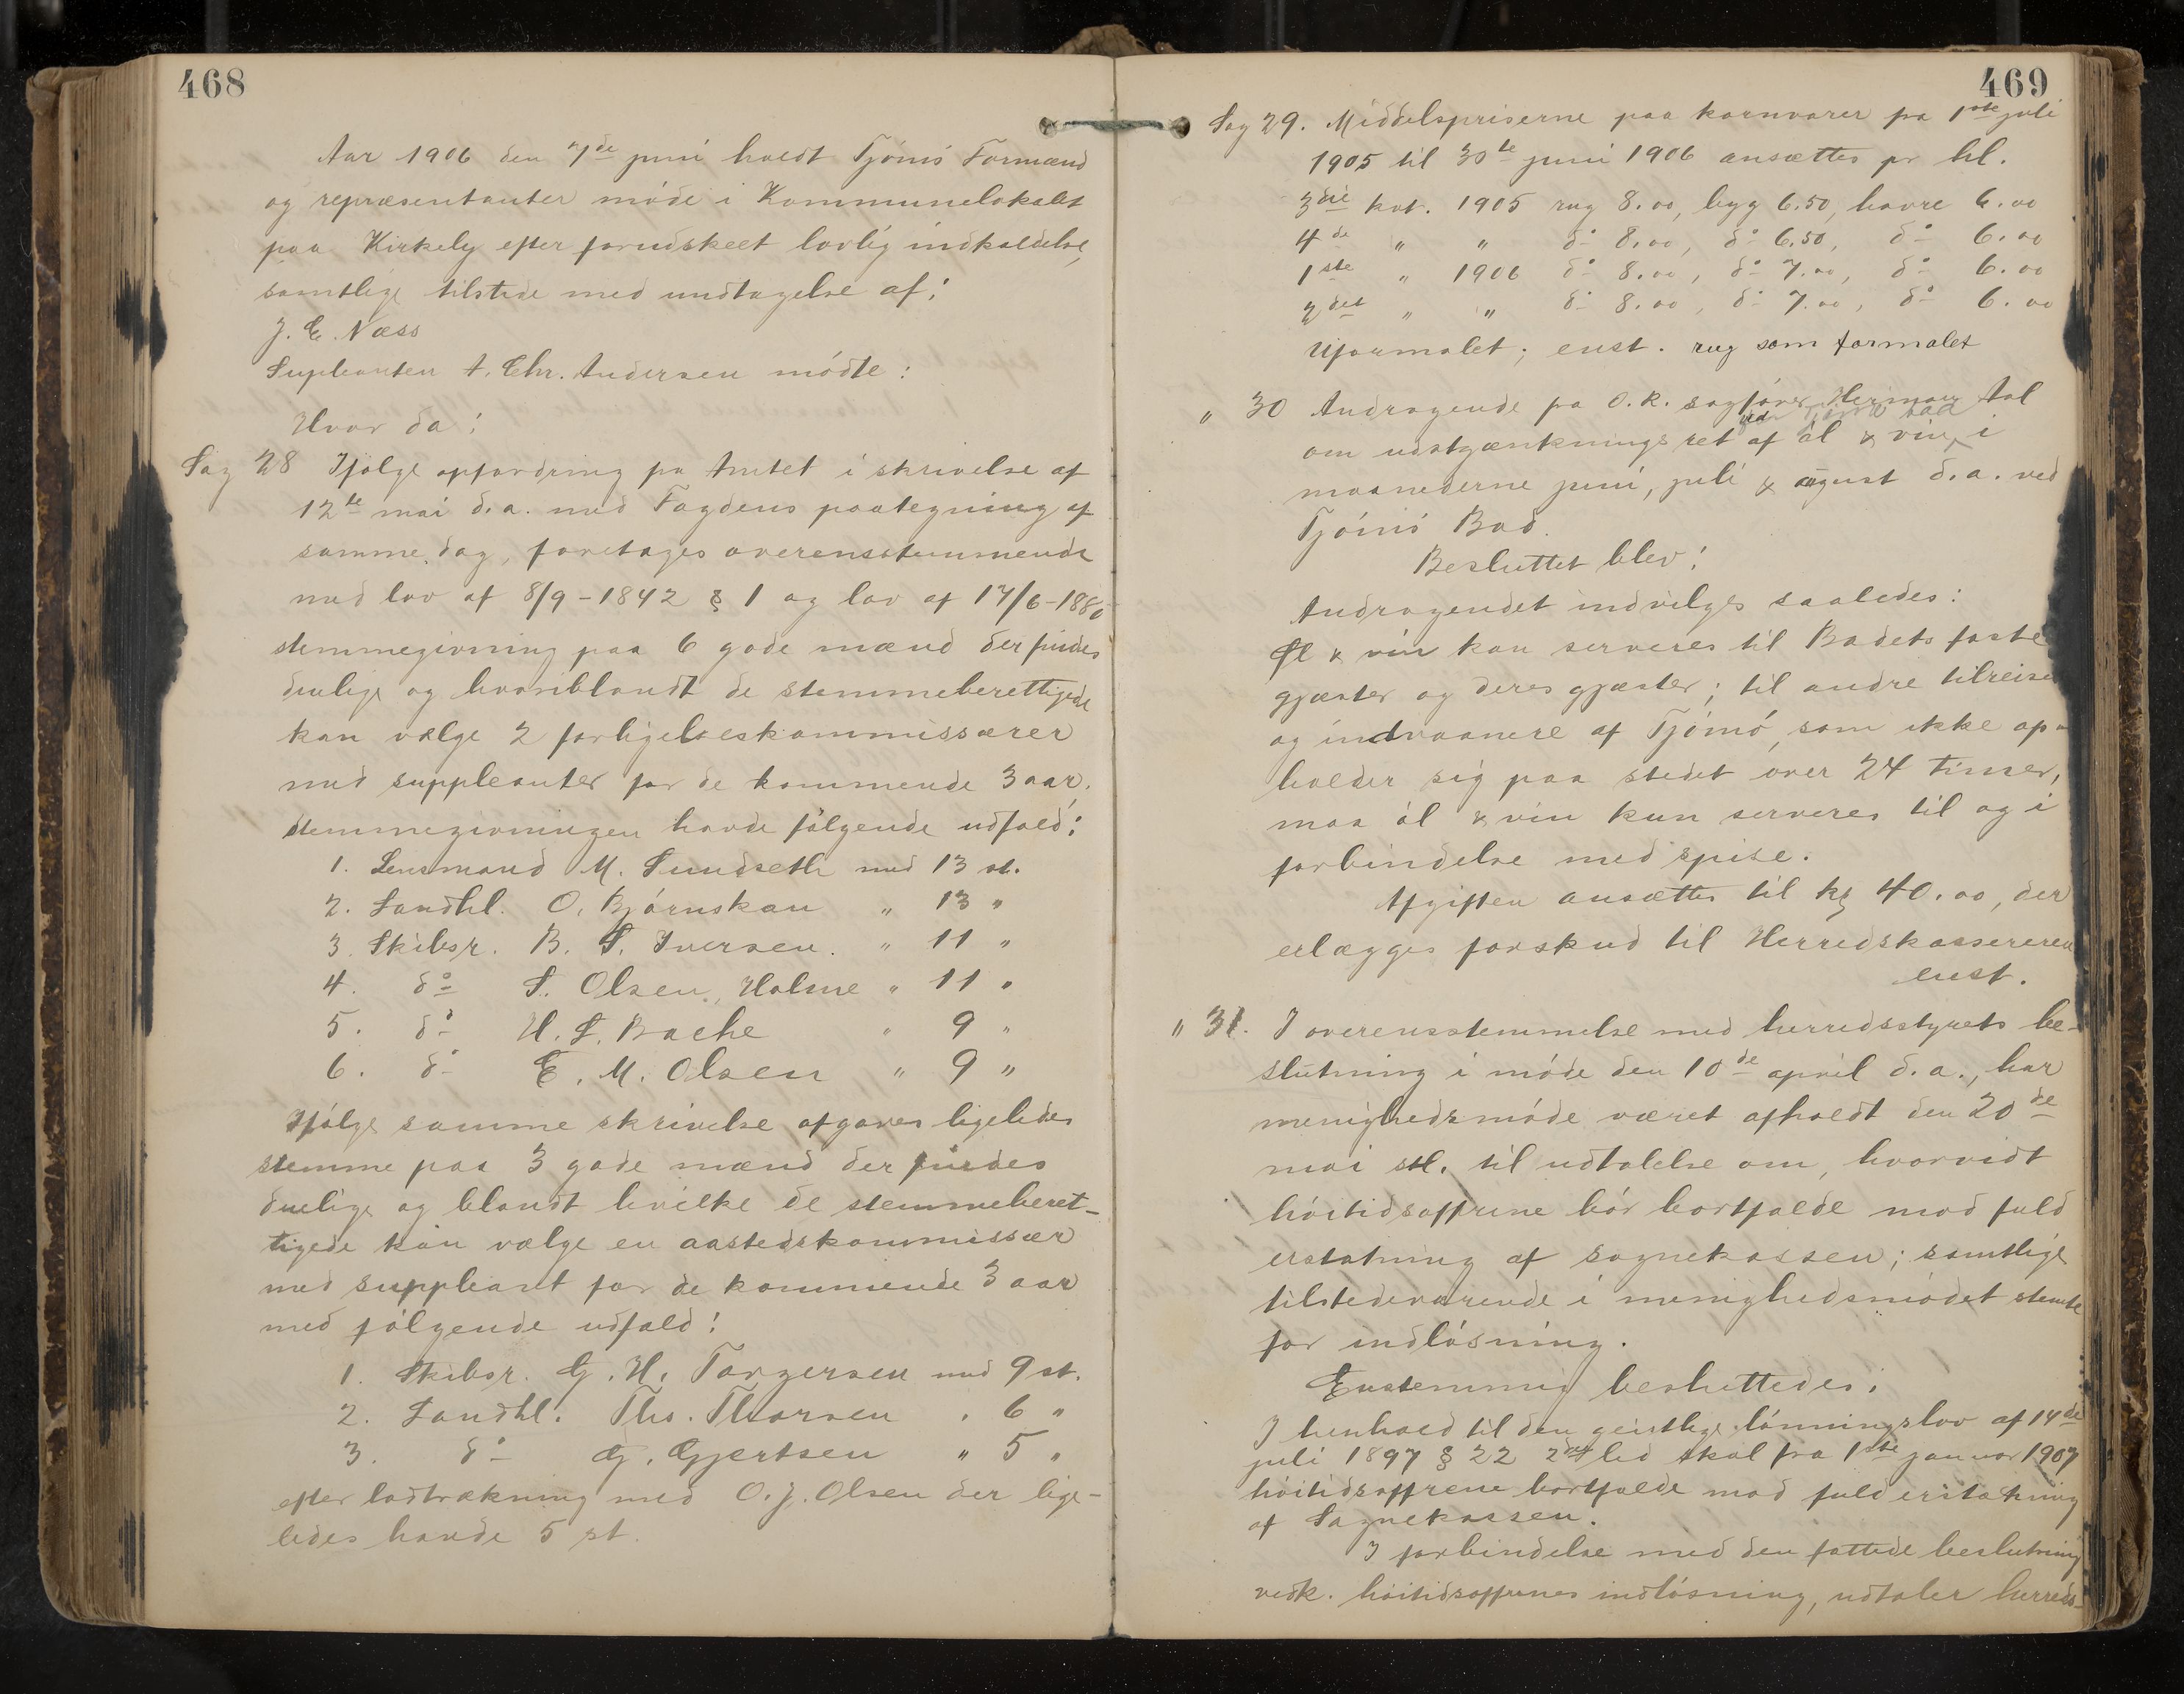 468
Aar 1906 den 7de juni holdt Tjømø Formænd
og repræsentanter møde i Kommunelokalet
paa Kirkely efter forudskeet lovlig indkaldelse,
samtlige tilstede med undtagelse af:
J. E. Næss
Supleanten A. Chr. Andersen mødte:
Hvor da:
Sag 28 Ifølge opfordring fra Amtet i skrivelse af
12te mai d.a. med Fogdens paategning af
samme dag, foretages overensstemmende
med lov af 8/9-1842 § 1 og lov af 17/6-1880
stemmegivning paa 6 gode mænd der findes
duelige og hvoriblandt de stemmeberettigede
kan vælge 2 forligelseskommissærer
med suppleanter for de kommende 3 aar.
Stemmegivningen havde følgende udfald:
1. Lensmand M. Sundseth med 13 st.
2. Landhl. O. Bjørnskau " 13 "
3. Skibsr. B. S. Iversen. " 11 "
4. do S. Olsen, Holme " 11 "
5. do H. L. Bache " 9 "
6. do E. M. Olsen " 9 "
Ifølge samme skrivelse afgaves ligeledes
stemme paa 3 gode mænd der findes
duelige og blandt hvilke de stemmeberet-
tigede kan vælge en aastedskommissær
med suppleant for de kommende 3 aar
med følgende udfald:
1. Skibsr. G. H. Torgersen med 9 st.
2. Landhl. Ths. Thorsen " 6 "
3. do G. Gjertsen " 5 "
efter lodtrækning med O. J. Olsen der lige-
ledes havde 5 st.
469
Sag 29. Middelspriserne paa kornvarer fra 1ste juli
1905 til 30te juni 1906 ansættes pr hl.
3die kvt. 1905 rug 8.00, byg 6.50, havre 6.00
4de " " do 8.00, do 6.50, do 6.00
1ste " 1906 do 8.00, do 7.00, do 6.00
2det " " do 8.00, do 7.00, do 6.00
Uformalet; enst. rug som formalet
" 30 Andragende fra O.R. sagfører Herman Aal
om udskjænkningsret af øl & vin i
maanederne juni, juli & august d.a. ved
Tjømø Bad.
Besluttet blev:
Andragendet indvilges saaledes:
Øl & vin kan serveres til Badets faste
gjæster og deres gjæster; til andre tilreisen
og indvaanere af Tjømø, som ikke op-
holder sig paa stedet over 24 timer,
maa øl & vin kun serveres til og i
forbindelse med spise.
Afgiften ansættes til kr 40.00, der
erlægges forskud til Herredskassereren
enst.
" 31. I overensstemmelse med herredsstyrets be-
slutning i møde den 10de april d.a., har
menighedsmøde været afholdt den 20de
mai stl. til udtalelse om, hvorvidt
høitidsoffrene bør bortfalde mod fuld
erstatning af sognekassen; samtlige
tilstedeværende i menighedsmødet stemte
for indløsning.
Enstemmig besluttedes:
I henhold til den geistlige lønningslov af 14de
juli 1897 § 22 2det led skal fra 1ste januar 1907
høitidsoffrene bortfalde mod fuld erstatning
af Sognekassen.
I forbindelse med den fattede beslutning
vedk. høitidsoffrenes indløsning, udtaler herreds-